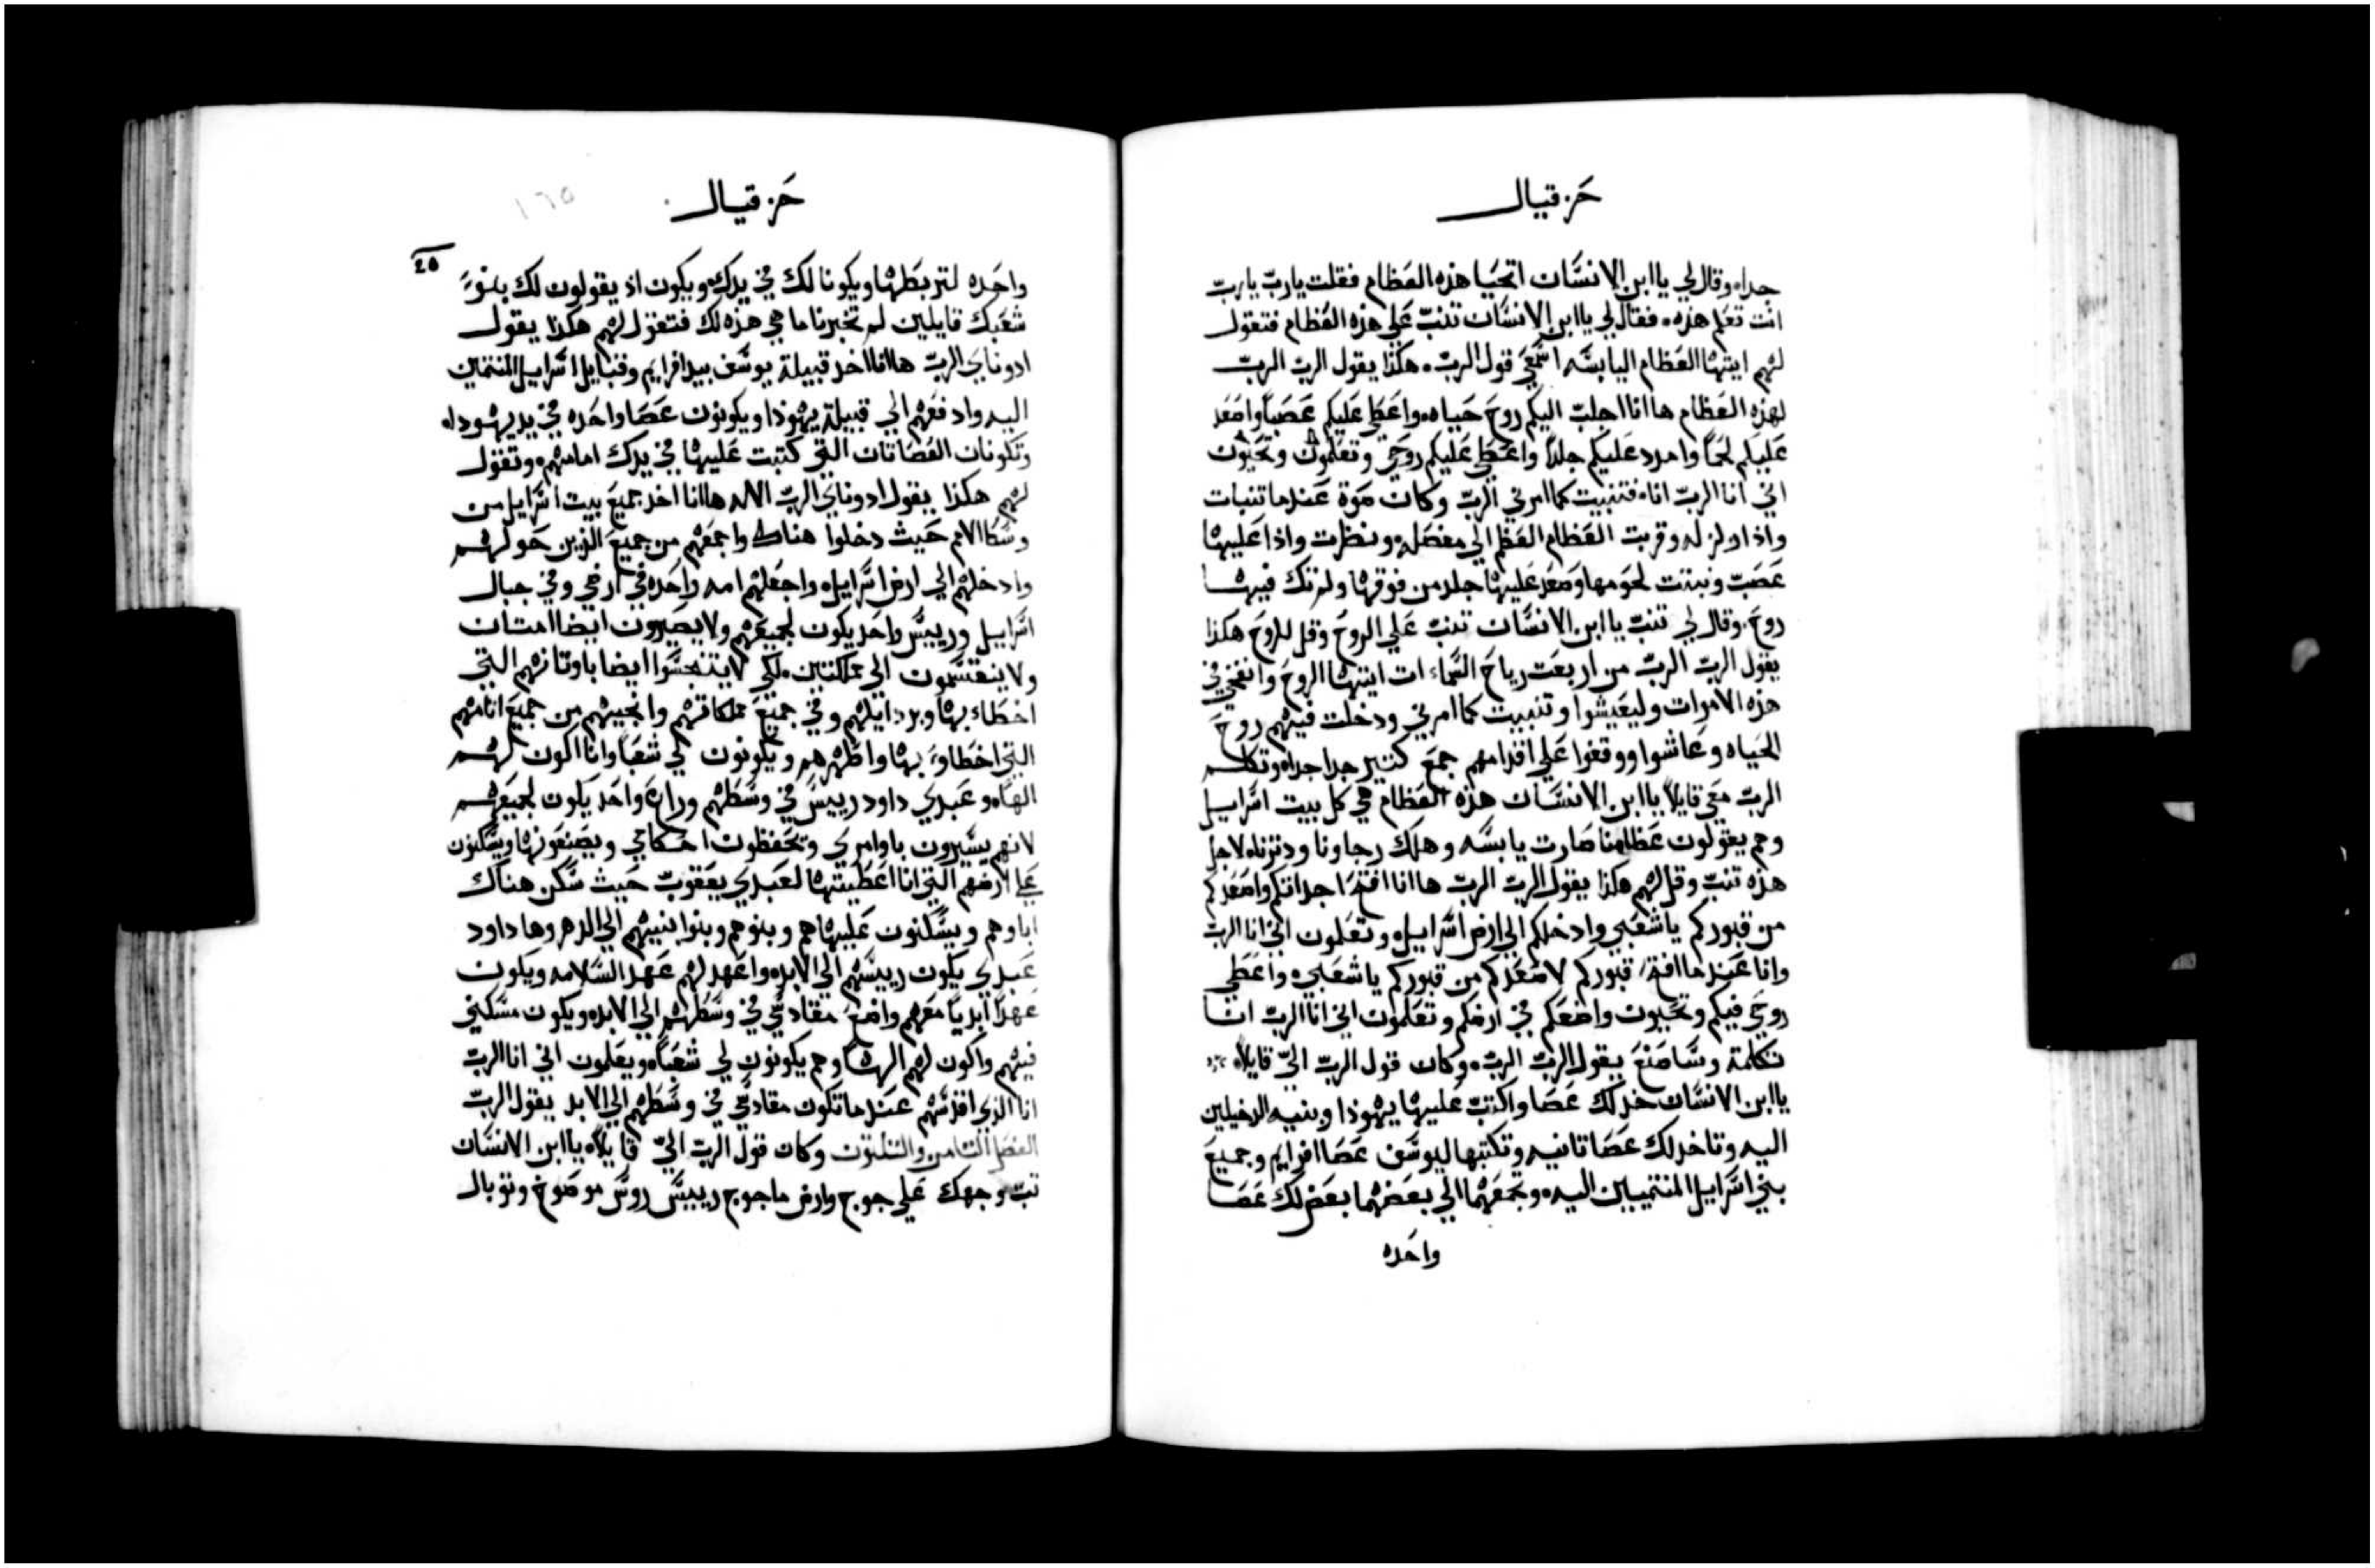 حزقيال
جدا، وقال لي ياابن الانسان اتحيا هذه العظام فقلت يارب يارب
انت تعلم هذه، فقال لي ياابن الانسان تنب علي هذه العظام فتقول
لهم ايتها العظام اليابسه اسمعي قول الرب، هكذا يقول الرب الرب
لهذه العظام هاانا اجلب اليكم روح حياه، واعطي عليكم عصبا واصعد
عليكم لحما وامدد عليكم جلدا واعطي عليكم روحي وتعلمون وتحيون
اني انا الرب انا، فتنبيت كما امرني الرب وكان صوة عندما تنبات
واذا دلزله وقربت العظام العظم الي مفصله، ونظرت واذا عليها
عصب ونبتت لحومها وصعد عليها جلد من فوقها ولم تك فيها
روح، وقال لي تنب ياابن الانسان تنب علي الروح وقل للروح هكذا
يقول الرب الرب من اربعت رياح السماءات ايتها الروح وانفخي في
هذه الاموات وليعيشوا وتنبيت كما امرني ودخلت فيهم روح
الحياه وعاشوا ووقفوا علي اقدامهم جمع كتير جدا جدا، وتكلم
الرب معي قايلا ياابن الانسان هذه العظام هي كل بيت اسراييل
وهم يقولون عظامنا صارت يابسه وهلك رجاونا ودتنا، لاجل
هذه تنب وقل لهم هكذا يقول الرب الرب هاانا افتح اجداتكم واصعدكم
من قبوركم ياشعبي وادخلكم الي ارض اسراييل، وتعلمون اني انا الرب
وانا عندما افتح قبوركم لاصعدكم من قبوركم ياشعبي، واعطي
روحي فيكم وتحيون واضعكم في ارضكم وتعلمون اني انا الرب انا
تكلمة وساصنع يقول الرب الرب، وكان قول الرب الي قايلا
ياابن الانسان خد لك عصا واكتب عليها يهوذا وبنيه الدخيلين
اليه وتاخد لك عصا تانيه وتكتبها ليوسف عصا افرايم وجميع
بني اسراييل المنتميين اليه، وتجمعهما الي بعضهما بعض لك عصا
واحده
حزقيال
١٦٥
20
واحده لتربطها ويكونا لك في يدك، ويكون اذ يقولون لك بنو
شعبك قايلين لم تخبرنا ما هي هذه لك فتقول لهم هكذا يقول
ادوناي الرب هاانا اخد قبيلة يوسف بيد افرايم وقبايل اسراييل المنتمين
اليه وادفعهم الي قبيلة يهوذا ويكونون عصا واحده في يد يهودا،
وتكونان العصاتان التي كتبت عليها في يدك امامهم، وتقول
لهم هكذا يقول ادوناي الرب الاله هاانا اخد جميع بيت اسراييل من
وسط الامم حيث دخلوا هناك واجمعهم من جميع الذين حولهم
وادخلهم الي ارض اسراييل، واجعلهم امه واحده في ارضي وفي جبال
اسراييل ورييس واحد يكون لجميعهم ولا يصيرون ايضا امتان
ولا ينقسمون الي مملكتين، لكي لا يتنجسوا ايضا باوتانهم التي
اخطاء بها وبردايلهم وفي جميع مملكاتهم وانجيهم من جميع اتامهم
التي اخطاو، بها واطهرهم ويكونون لي شعبا وانا اكون لهم
الها، وعبدي داود رييس في وسطهم وراع واحد يكون لجميعهم
لانهم يسيرون باوامري وتحفظون احكامي ويصنعونها ويسكنون
علي ارضهم التي انا اعطيتها لعبدي يعقوب حيث سكن هناك
اباوهم ويسكنون عليها هم وبنوهم وبنوا بنيهم الي الدهر وها داود
عبدي يكون رييسهم الي الابد، واعهد لهم عهد السلامه ويكون
عهدا ابديا معهم واضع مقادسي في وسطهم الي الابد، ويكون مسكني
فيهم واكون لهم الها وهم يكونون لي شعبا، ويعلمون اني انا الرب
انا الذي اقدسهم عندما تكون مقادسي في وسطهم الي الابد يقول الرب
الفصل التامن والتلتون وكان قول الرب الي قايلا، ياابن الانسان
تبت وجهك علي جوج وارض ماجوج رييس روس موصوخ وتوبال